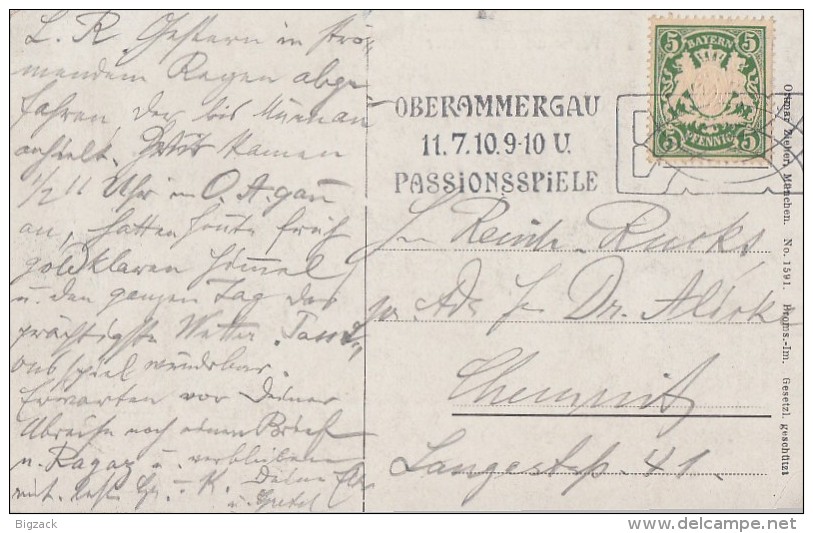 L. R. Gestern in strö-
mendem Regen abge-
fahren, der bis Murnau
anhielt. kamen
1/2 11 Uhr in O. A. gau
an, hatten heute früh
goldklaren Himmel
u. den ganzen Tag das
prächtigste Wetter.
spiel wunderbar.
Erwarten vor Deiner
Abreise noch einen Brief
n. Ragaz u. verbleiben
mit Gr. u. K. Deine
u. Gretel
BAYERN
5 5
5 5
PFENNIG
OBERAMMERGAU
11.7.10.9-10 U.
PASSIONSSPIELE
Reinh.
Dr.
Chemnitz
Langestr. 41.
Ottmar Zieher, München. No. 1591. Broms.-Im. Gesetzl. geschützt
Bigzack
www.delcampe.net